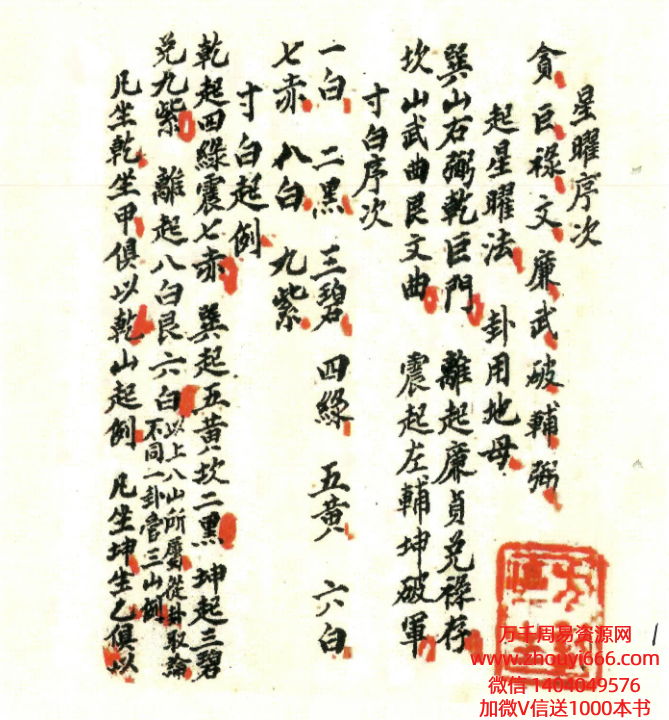 星曜序次
貪 巨 祿 文 廉 武 破 輔 弼
起星曜法 卦用地母
巽山右弼乾巨門 離起廉貞兌祿存
坎山武曲艮文曲 震起左輔坤破軍
寸白序次
一白 二黑 三碧 四綠 五黃 六白
七赤 八白 九紫
寸白起例
乾起四綠震七赤 巽起五黃坎二黑 坤起三碧
兌九紫 離起八白艮六白 以上八山所屬從卦取論
不同一卦管三山例
凡坐乾坐甲俱以乾山起例 凡坐坤坐乙俱以
1
万千周易资源网
www.zhouyi666.com
微信 1404049576
加微V信送1000本书